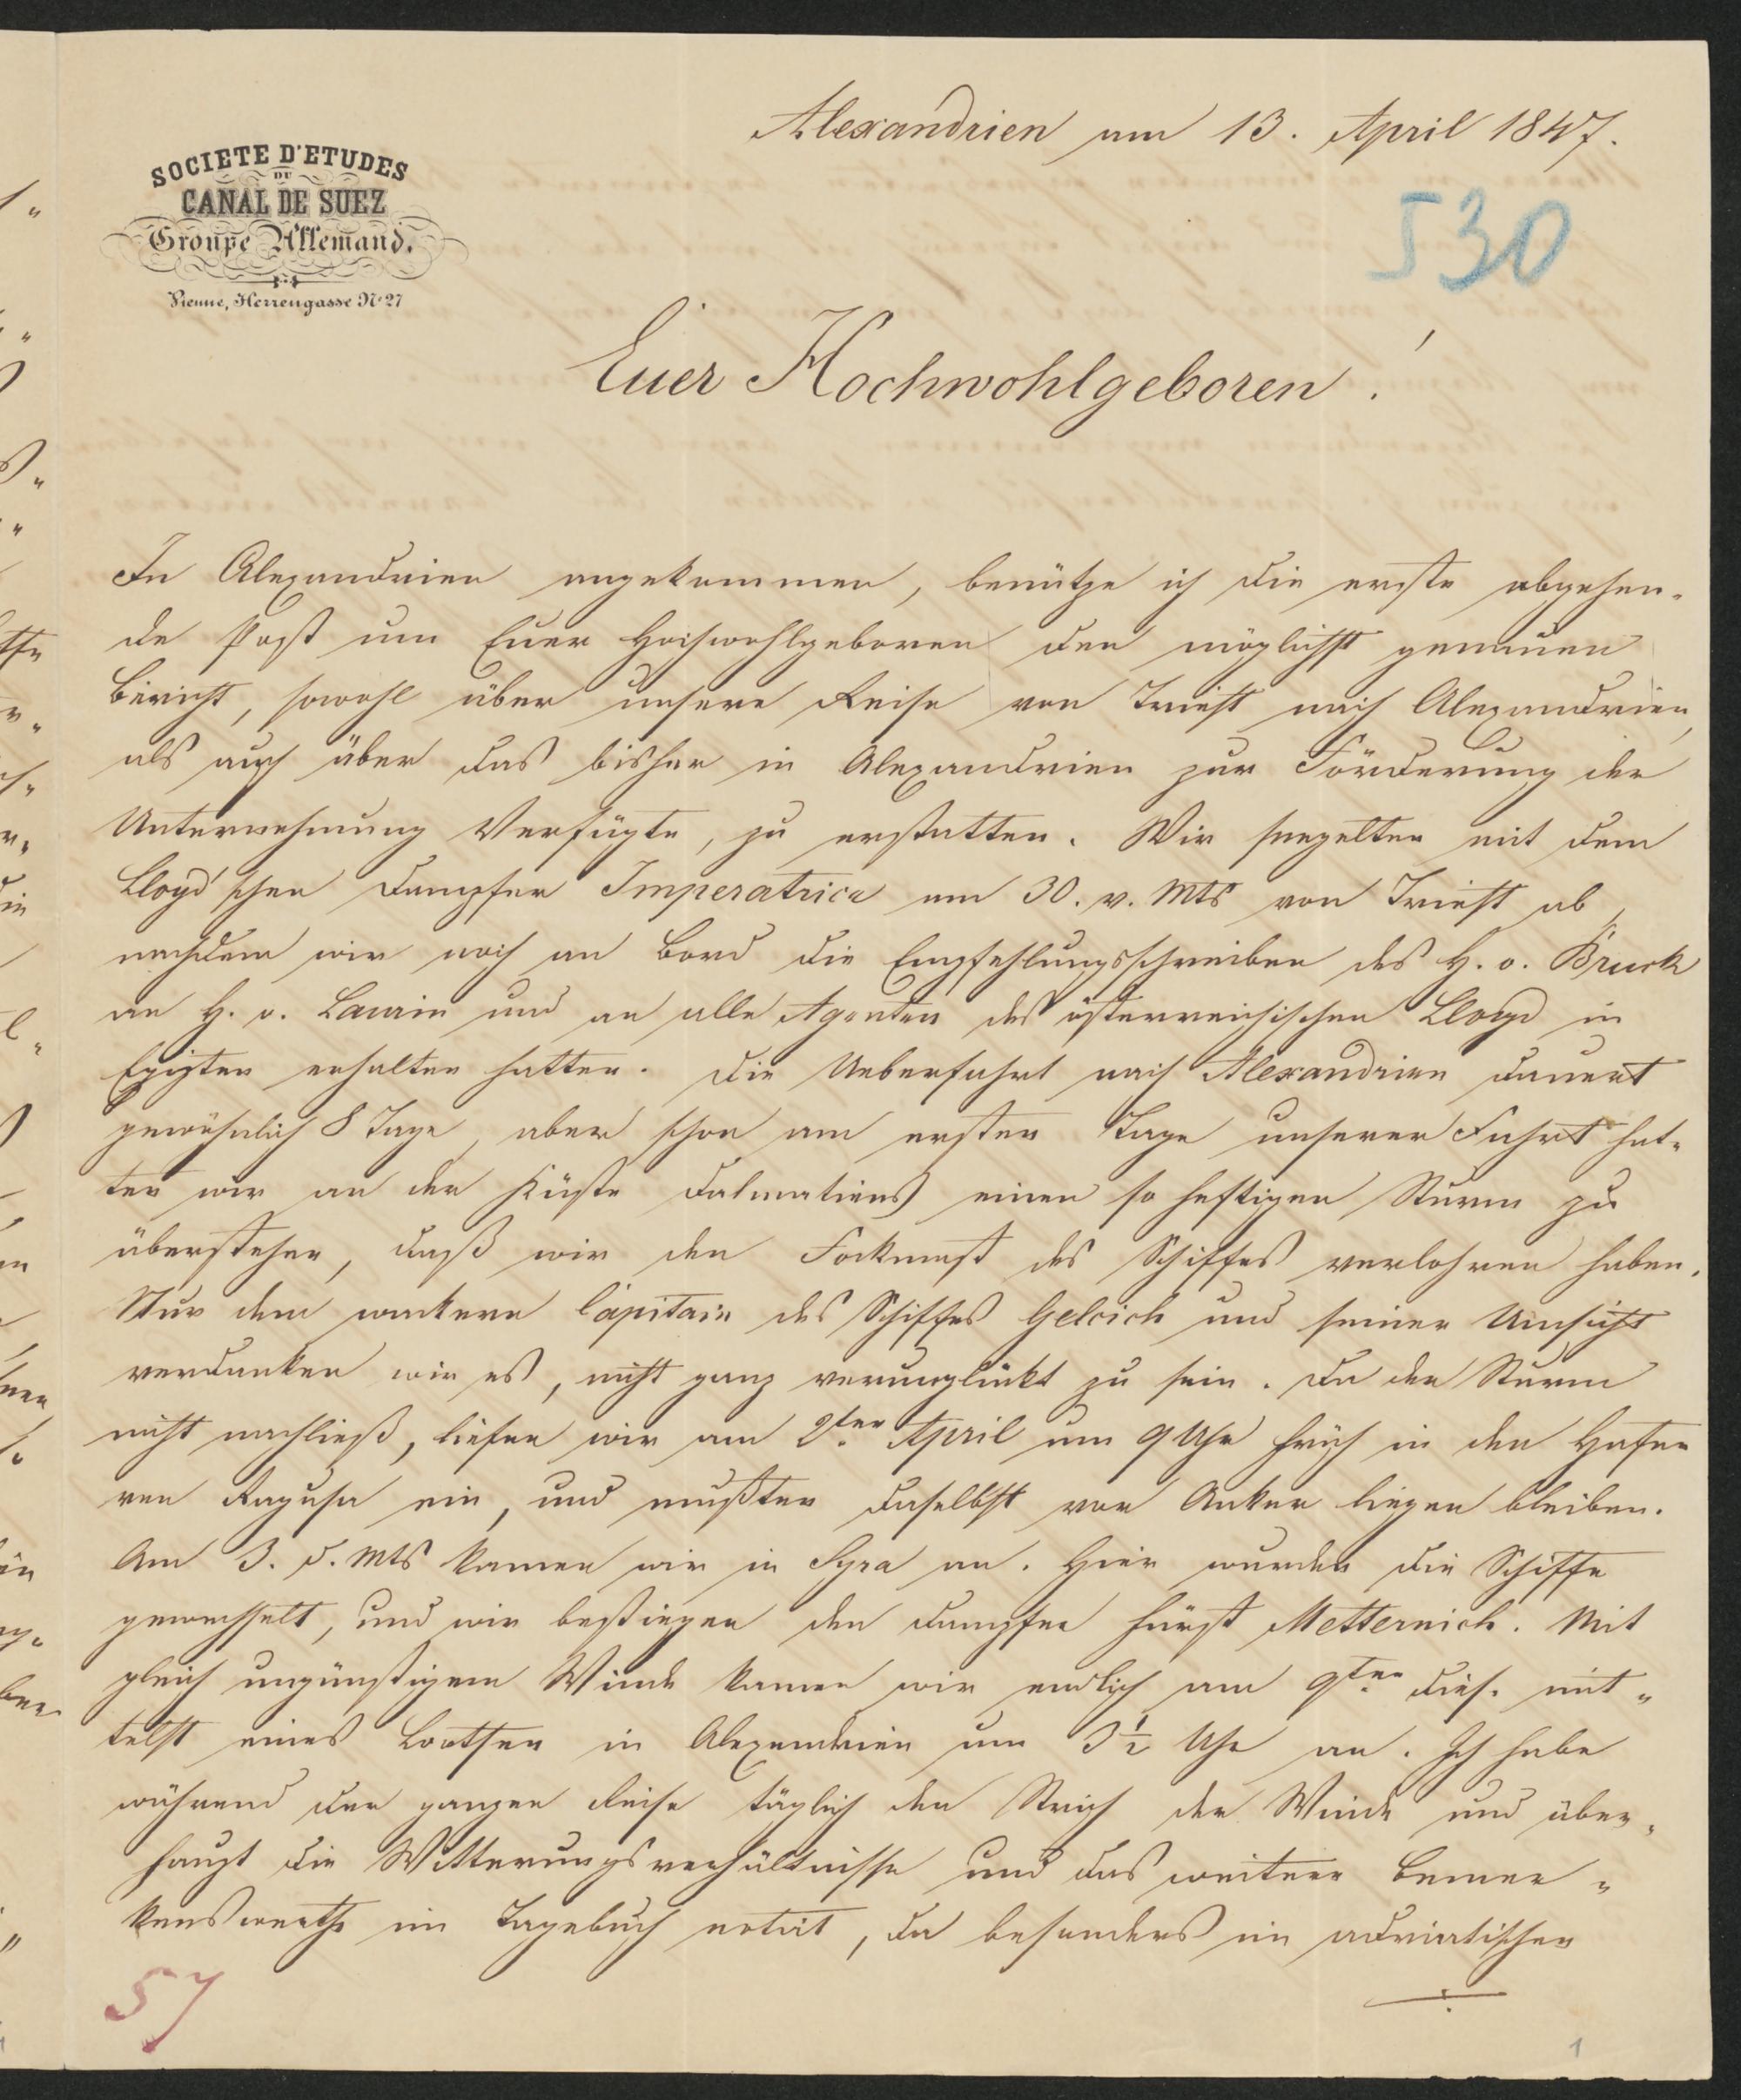 Alexandrien am 13. April 1847.
SOCIETE D'ETUDES
DU
CANAL DE SUEZ
Groupe Allemand.
Vienne, Herrengasse No 27
530
Euer Hochwohlgeboren!
In Alexandrien angekommen, benütze ich die erste abgehen-
de Post um Euer Hochwohlgeboren den möglichst genauen
Bericht, sowohl über unsere Reise von Triest nach Alexandrien,
als auch über das bisher in Alexandrien zur Förderung der
Unternehmung Verfügte, zu erstatten. Wir seegelten mit dem
Lloyd'schen Dampfer Imperatrice am 30. v. Mts von Triest ab,
nachdem wir noch an Bord die Empfehlungsschreiben des H. v. Bruck
an H. v. Laurin und an alle Agenten des österreichischen Lloyd in
Egipten erhalten hatten. Die Ueberfahrt nach Alexandrien dauert
gewöhnlich 8 Tage, aber schon am ersten Tage unserer Fahrt hat-
ten wir an der Küste Dalmatiens einen so heftigen Sturm zu
überstehen, daß wir den Fockmast des Schiffes verlohren haben.
Nur dem wackern Capitain des Schiffes Gelcich und seiner Umsicht
verdanken wir es, nicht ganz verunglückt zu sein. Da der Sturm
nicht nachließ, liefen wir am 2ten April um 9 Uhr früh in den Hafen
von Ragusa ein, und mußten daselbst vor Anker liegen bleiben.
Am 3. d. Mts kamen wir in Syra an. Hier wurden die Schiffe
gewechselt, und wir bestiegen den Dampfer Fürst Metternich. Mit
gleich ungünstigem Winde kamen wir endlich am 9ten dies. mit-
telst eines Lootsen in Alexandrien um 3½ Uhr an. Ich habe
während der ganzen Reise täglich den Strich der Winde und über-
haupt die Witterungsverhältnisse und das weitere Bemer-
kenswerthe im Tagebuch notirt, da besonders im adriatischen
57
1